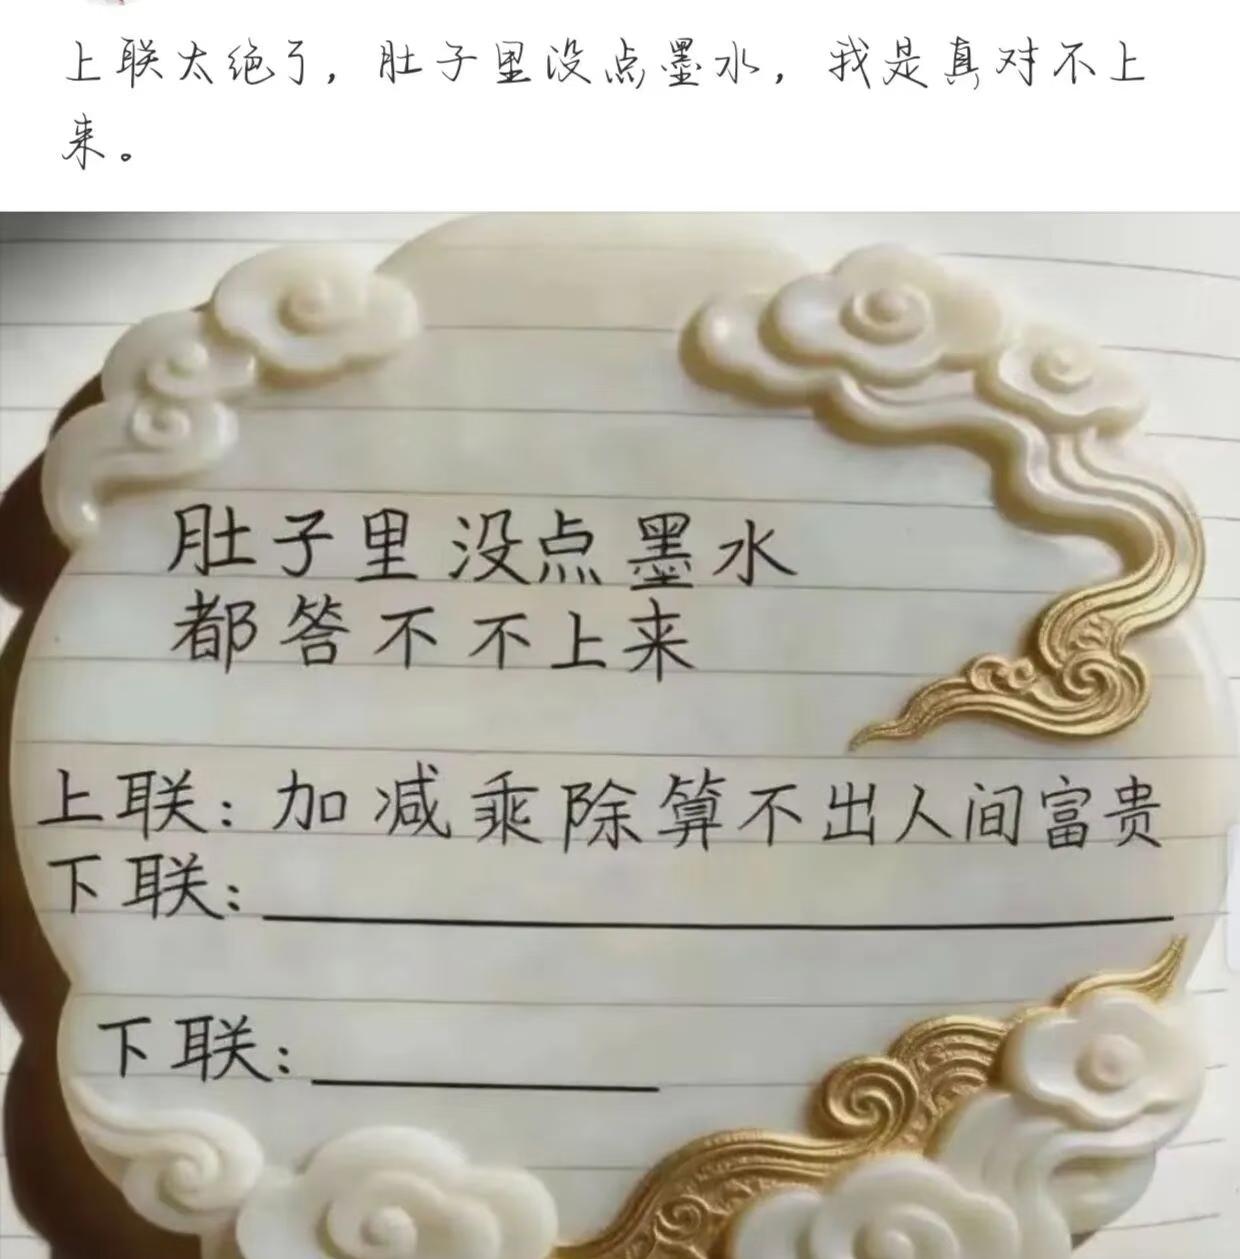 上联太绝了，肚子里没点墨水，我是真对不上
来。
肚子里没点墨水
都答不不上来
上联：加减乘除算不出人间富贵
下联：
下联：